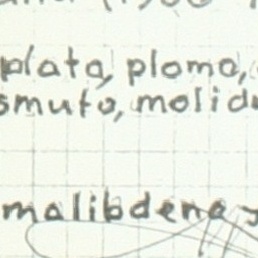 plata, plomo,
smuto, molid
malibdeno y